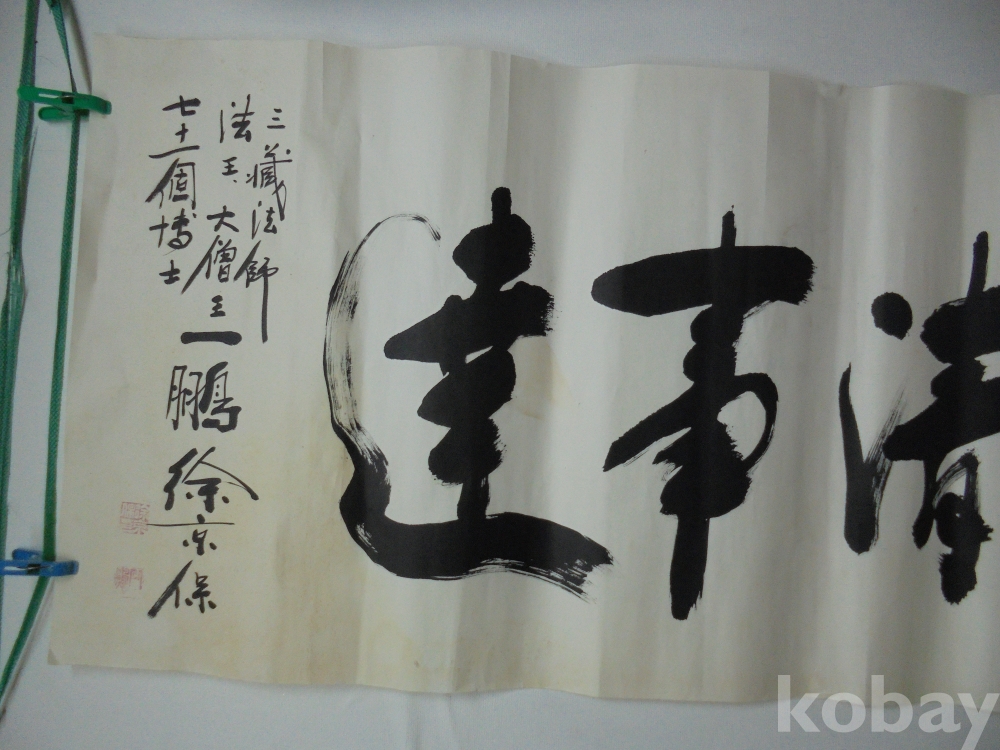 清事達
三藏法師
法王 大僧王
七十一個博士
一鵬 徐京保
kobay